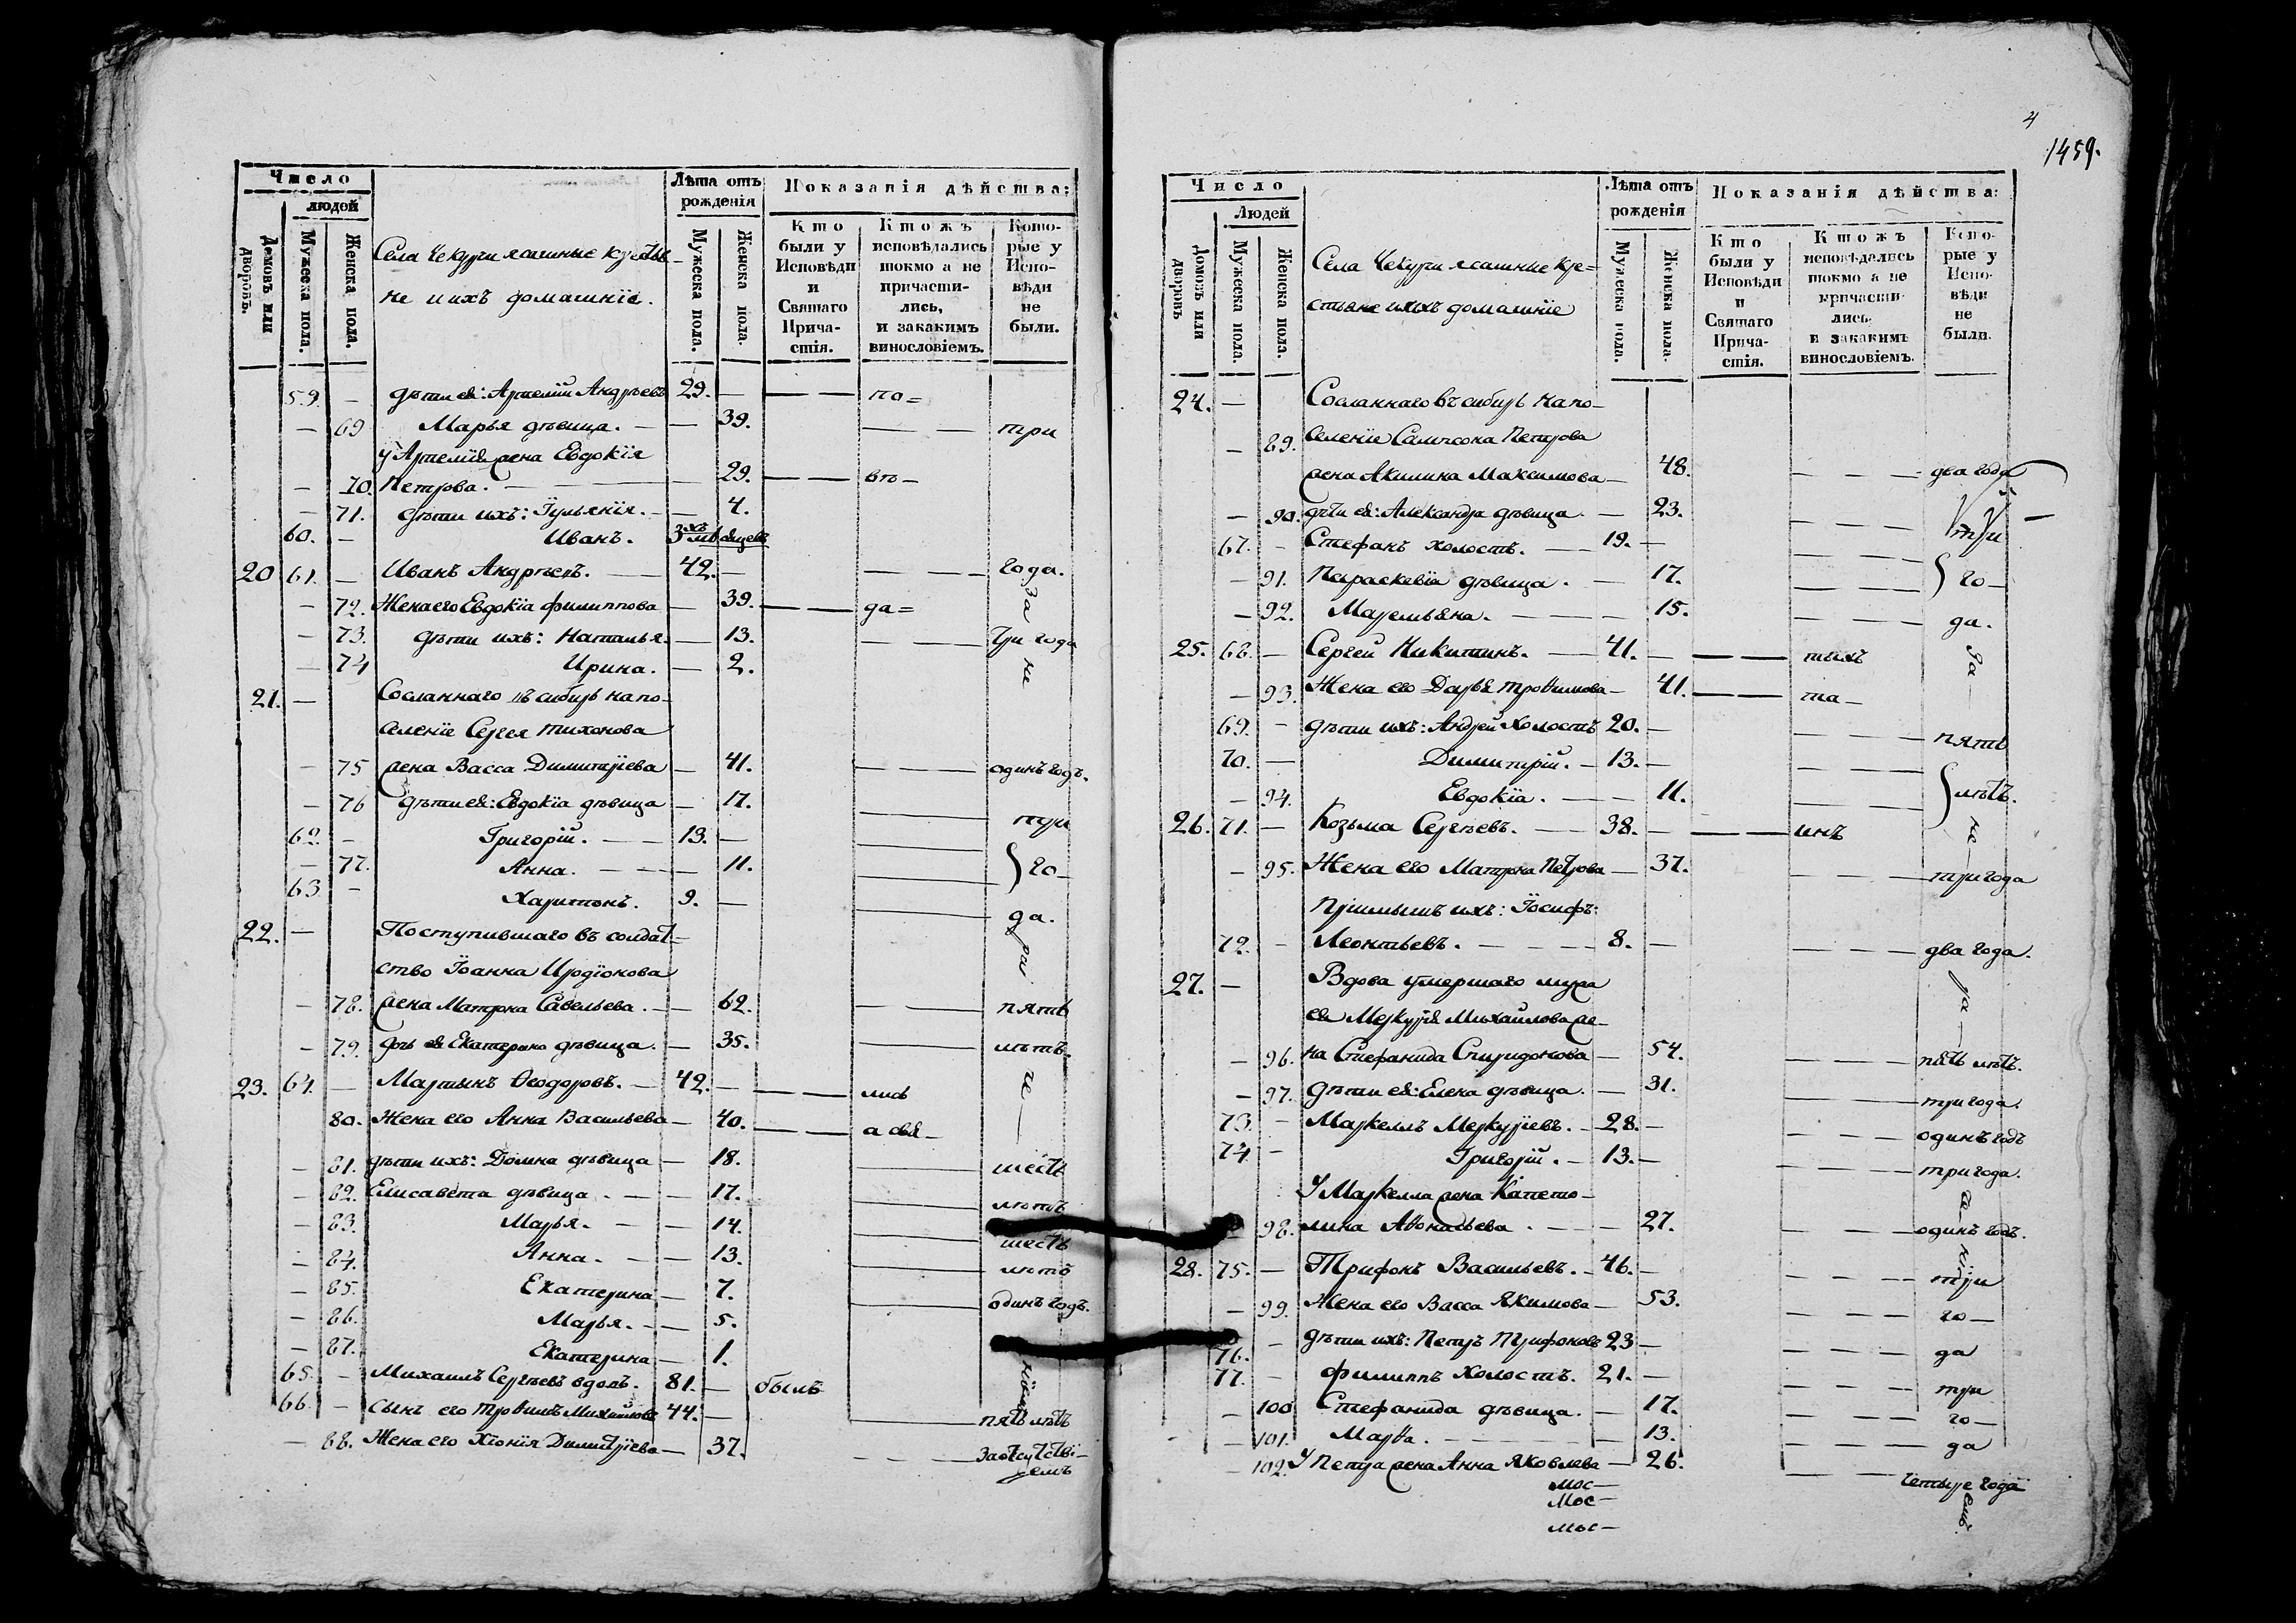 Число
людей
Домовъ или дворовъ.
Мужеска пола.
Женска пола.
Села Чекури ясашные крестья-
не и ихъ домашніе.
Лѣта отъ рожденія
Мужеска пола.
Женска пола.
Показанія дѣйства:
Кто были у Исповѣди и Святаго Прича-стія.
Ктожъ исповѣдались токмо а не причасти-лись, и закакимъ винословіемъ.
Кото-рые у Испо-вѣди не были.
59. — дѣти ея: Артемій Андреевъ 29. — — — по=
— 69 Марья дѣвица. — — 39. — — три
у Артемія жена Евдокія
— 70. Петрова. — — 29. — — вто—
— 71. дѣти ихъ: Іульянія. — — 4.
60. — Иванъ. 3хъ мѣсяцевъ
20 61. — Иванъ Андреевъ. — 42. — — — года.
— 72. Жена его Евдокіа филиппова — 39. — — да= за
— 73. дѣти ихъ: Наталья. — 13. — — три года
— 74 Ирина. — 2. не
21. — Сосланнаго въ сибирь на по-
селеніе Сергея тихонова
— 75 жена Васса Димитріева — 41. — — одинъ годъ.
— 76 дѣти ея: Евдокіа дѣвица — 17. — три
62. — Григорій. — — 13. —
— 77. Анна. — — — 11. — го—
63 — Харитонъ. 9. — — да.
22. — Поступившаго въ солдат=
ство Іоанна Иродіонова
— 78. жена Матрона Савельева. — 62. — — пять
— 79. дочь ея Екатерина дѣвица. — 35. — — лѣтъ.
23. 64. — Мартынъ Ѳеодоровъ. — 42. — — — лись
80. Жена его Анна Васильева — 40. — — а свя—
— 81. дѣти ихъ: Домна дѣвица — 18. — шесть
— 82. Елисавета дѣвица. — — 17. — лѣтъ
— 83. Марья. — — 14. — шесть
— 84. Анна. — — 13. — лѣтъ
— 85. Екатерина — 7. — одинъ годъ.
— 86. Марья. — — 5.
— 87. Екатерина — 1.
65. — Михаилъ Сергѣевъ вдовъ. 81. — былъ
66. — Сынъ его Трофимъ Михайловъ 44. — — пять лѣтъ
— 88. Жена его Хіонія Димитріева — 37. — — — За отсутстві-
емъ
4
1459.
Число
Людей
Домовъ или дворовъ
Мужеска пола.
Женска пола.
Села Чекури ясашные кре=
стьяне и ихъ домашніе
Лѣта отъ рожденія
Мужеска пола.
Женска пола.
Показанія дѣйства:
Кто были у Исповѣди и Святаго Прича-стія.
Ктожъ исповѣдались токмо а не причасти-лись. и закакимъ винословіемъ.
Кото-рые у Испо-вѣди не были.
24. — Сосланнаго въ сибирь на по—
— 89. селеніе Сампсона Петрова
жена Акилина Максимова — 48. — — — два года
— 90. дѣти ея: Александра дѣвица. — 23. — — — три
67. — Стефанъ холостъ. — 19. —
— 91. Параскевіа дѣвица. — 17. — — го—
— 92. Маремьяна. — — 15. — — — да.
25. 68. — Сергей Никитинъ. — 41. — — — тыхъ За
— 93. Жена его Дарья трофимова — 41. — — та—
69. — дѣти ихъ: Андрей Холостъ 20. — — — — пять
70. — Димитрій. — 13. —
— 94. Евдокіа. — — 11. — — лѣтъ.
26. 71. — Козьма Сергѣевъ. — 38. — — — инъ не
— 95. Жена его Матрона Петрова — 37. — — — три года
Пріимышъ ихъ: Іосифъ:
72. — Леонтьевъ. — — — 8. — — — — два года.
27. — Вдова умершаго мужа
ея Меркурія Михайлова же-
— 96. на Стефанида Спиридонова — 54. — — — пять лѣтъ.
— 97. дѣти ея: Елена дѣвица. — 31. — — — три года.
73. — Маркеллъ Меркуріевъ. — 28. — — — — одинъ годъ
74 — Григорій. — 13. — — — — три года.
У Маркелла жена Капето—
— 98. лина Аѳонасьева. — — 27. — — — одинъ годъ.
28. 75. — Трифонъ Васильевъ. — 46. — — — — три
— 99. Жена его Васса Якимова — 53. — — — го—
76. — дѣти ихъ: Петръ Трифоновъ 23 — — — — да
77. — филиппъ Холостъ. 21. — — — — три
— 100 Стефанида дѣвица. — 17. — — — го—
— 101. Марѳа. — — — 13. — — — да
— 102. У Петра жена Анна Яковлева — 26. — — четыре года
Мос—
Мос—
мос—